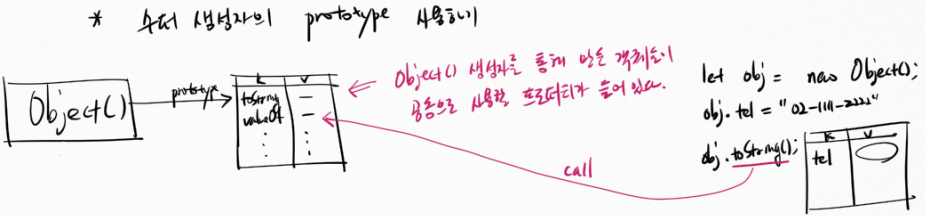 * 수퍼 생성자의 prototype 사용하기
Object()
prototype
k v
toString —
valueOf —
Object() 생성자를 통해 만든 객체들이
공통으로 사용할 프로퍼티가 들어 있다.
call
let obj = new Object();
obj.tel = "02-1111-2222"
obj.toString();
k v
tel